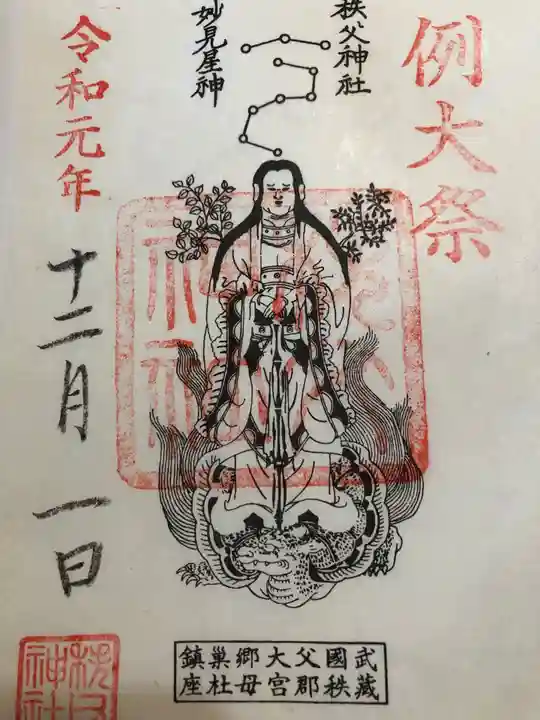 例大祭
秩父神社
妙見星神
令和元年
十二月一日
武藏國秩父郡大宮郷母巣杜鎮座
秩父神社
秩父神社